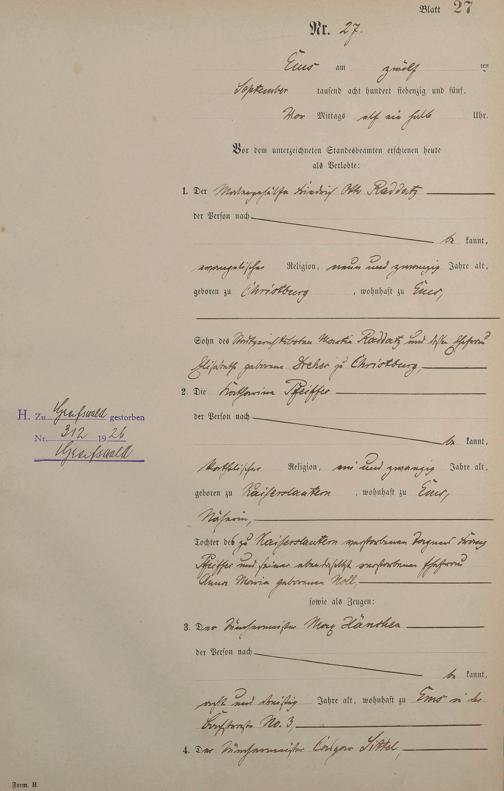 Blatt 27
Nr. 27.
Ems am zwölf ten
September tausend acht hundert siebenzig und fünf,
Vor Mittags elf ein halb Uhr.
Vor dem unterzeichneten Standesbeamten erschienen heute
als Verlobte:
1. Der Malergehülfe Friedrich Otto Raddatz
der Person nach
be kannt,
evangelischer Religion, neun und zwanzig Jahre alt,
geboren zu Christburg, wohnhaft zu Ems,
Sohn des Raddatz und dessen Ehefrau
Elisabeth geborene Dreher zu Christburg
2. Die Katharina Pfeiffer
der Person nach
be kannt,
katholischer Religion, ein und zwanzig Jahre alt,
geboren zu Kaiserslautern, wohnhaft zu Ems,
Näherin,
Tochter des zu Kaiserslautern verstorbenen Franz
Pfeiffer und seiner ebendaselbst verstorbenen Ehefrau
Anna Maria geborenen Noll.
sowie als Zeugen:
3. Der Max Hänchen
der Person nach
be kannt,
acht und dreißig Jahre alt, wohnhaft zu Ems in der
No. 3,
4. Der
H. Zu Greifswald gestorben
Nr. 312 1926
Greifswald
Form. B.